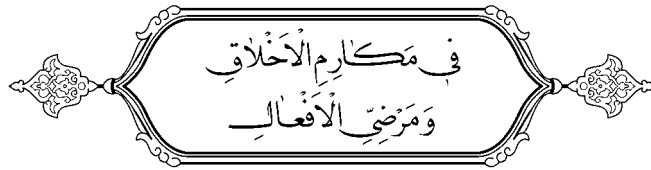 فِي مَكَارِمِ الْاَخْلَاقِ
وَ مَرْضِيِّ الْاَفْعَالِ